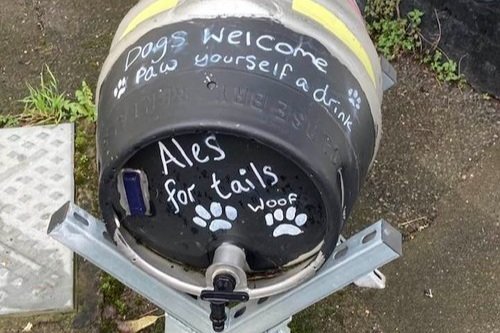 Dogs Welcome
Paw yourself a drink
Ales
for tails
Woof